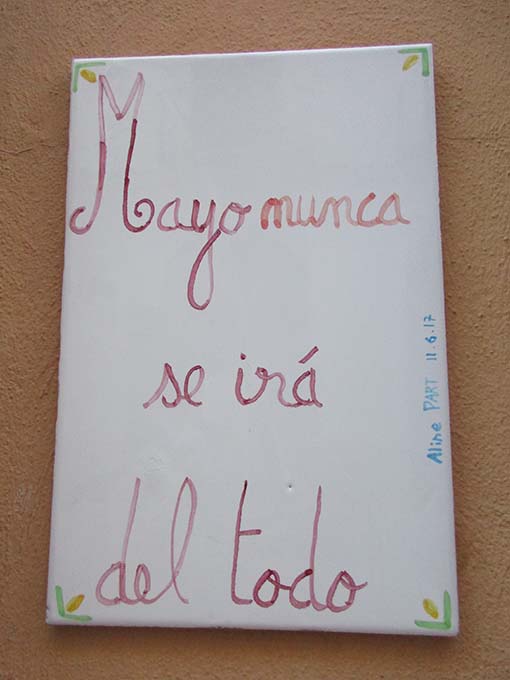 Mayo munca
se irá
del todo
Aline PART 11.6.17